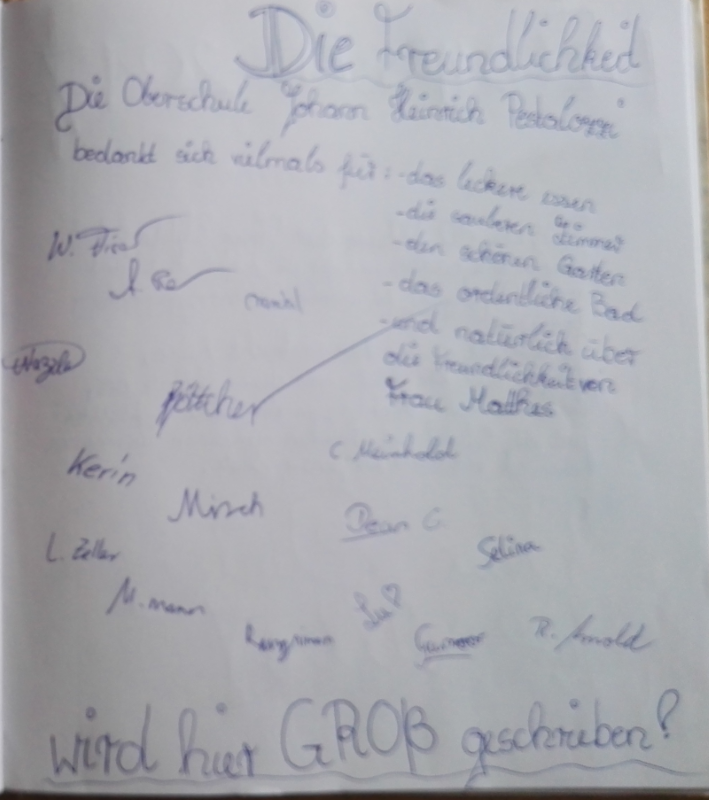 Die Freundlichkeit
Die Oberschule "Johann Heinrich Pestalozzi"
bedankt sich vielmals für: -das leckere essen
-die sauberen Zimmer
-den schönen Garten
-das ordentliche Bad
-und natürlich über
die Freundlichkeit von
Frau Matthes
W.
Böttcher
C. Meinhold
Kerin
Mirsch
Dean C.
L. Zeller
Selina
M. mann
R. Arnold
wird hier GROß geschrieben!